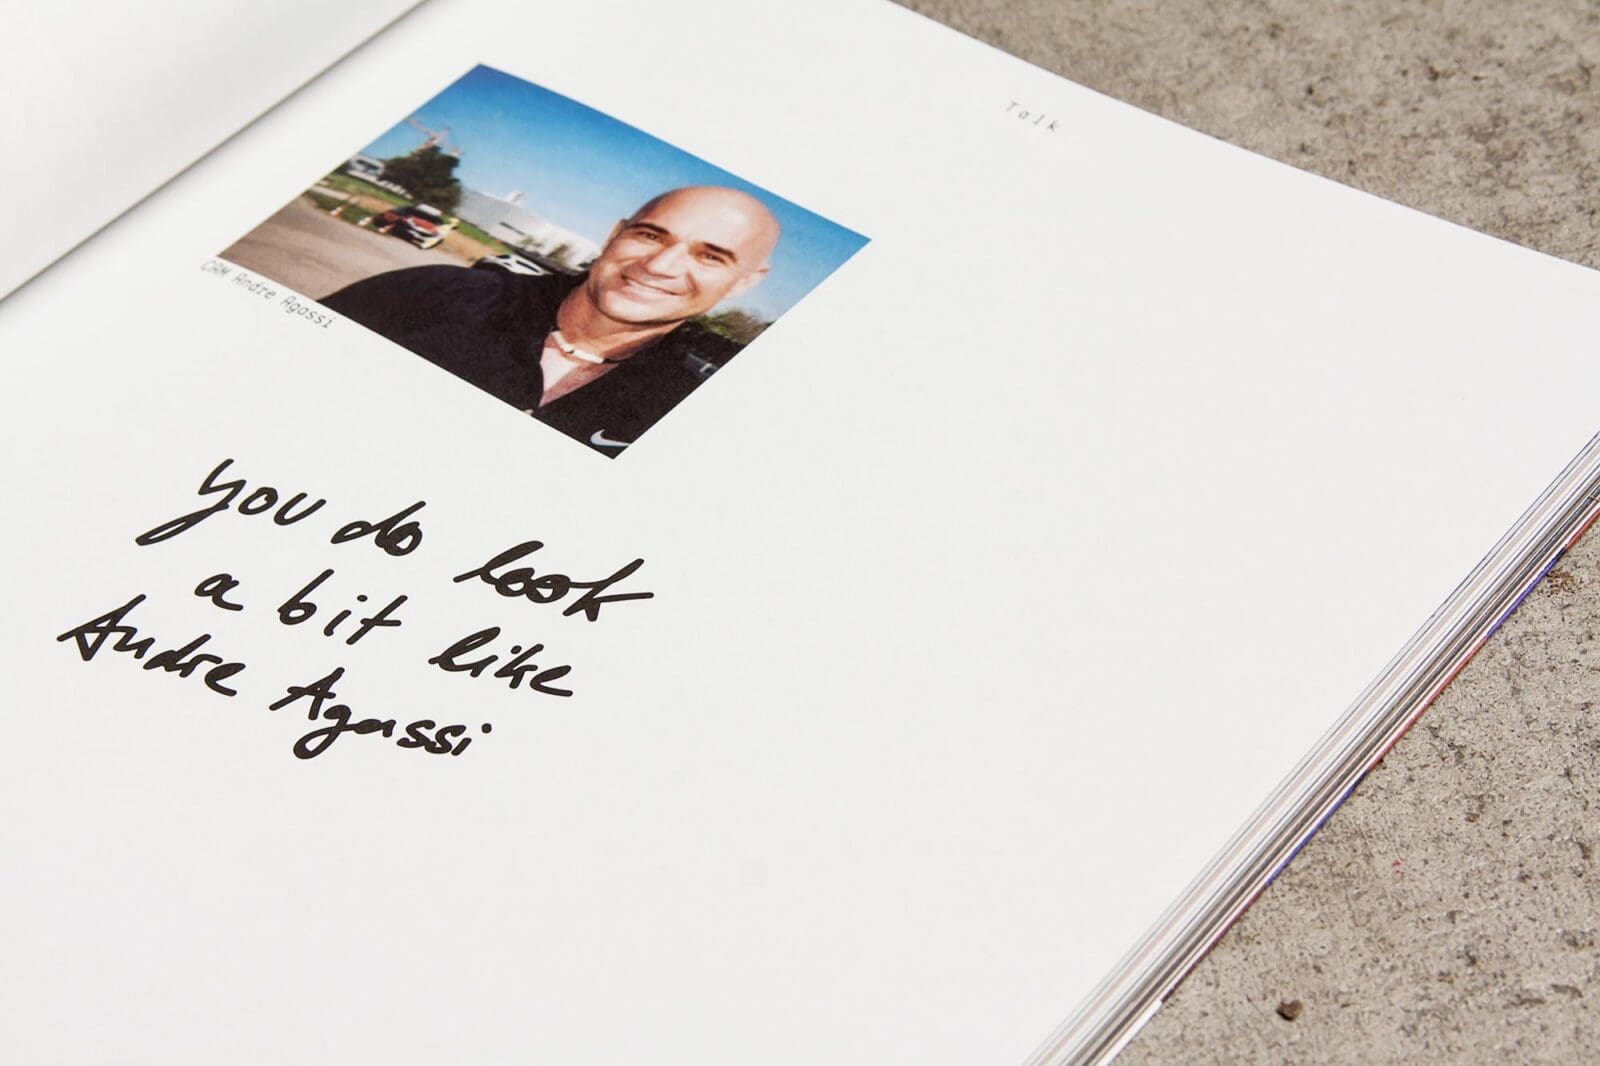 Talk
CAM Andre Agassi
you do look
a bit like
Andre Agassi